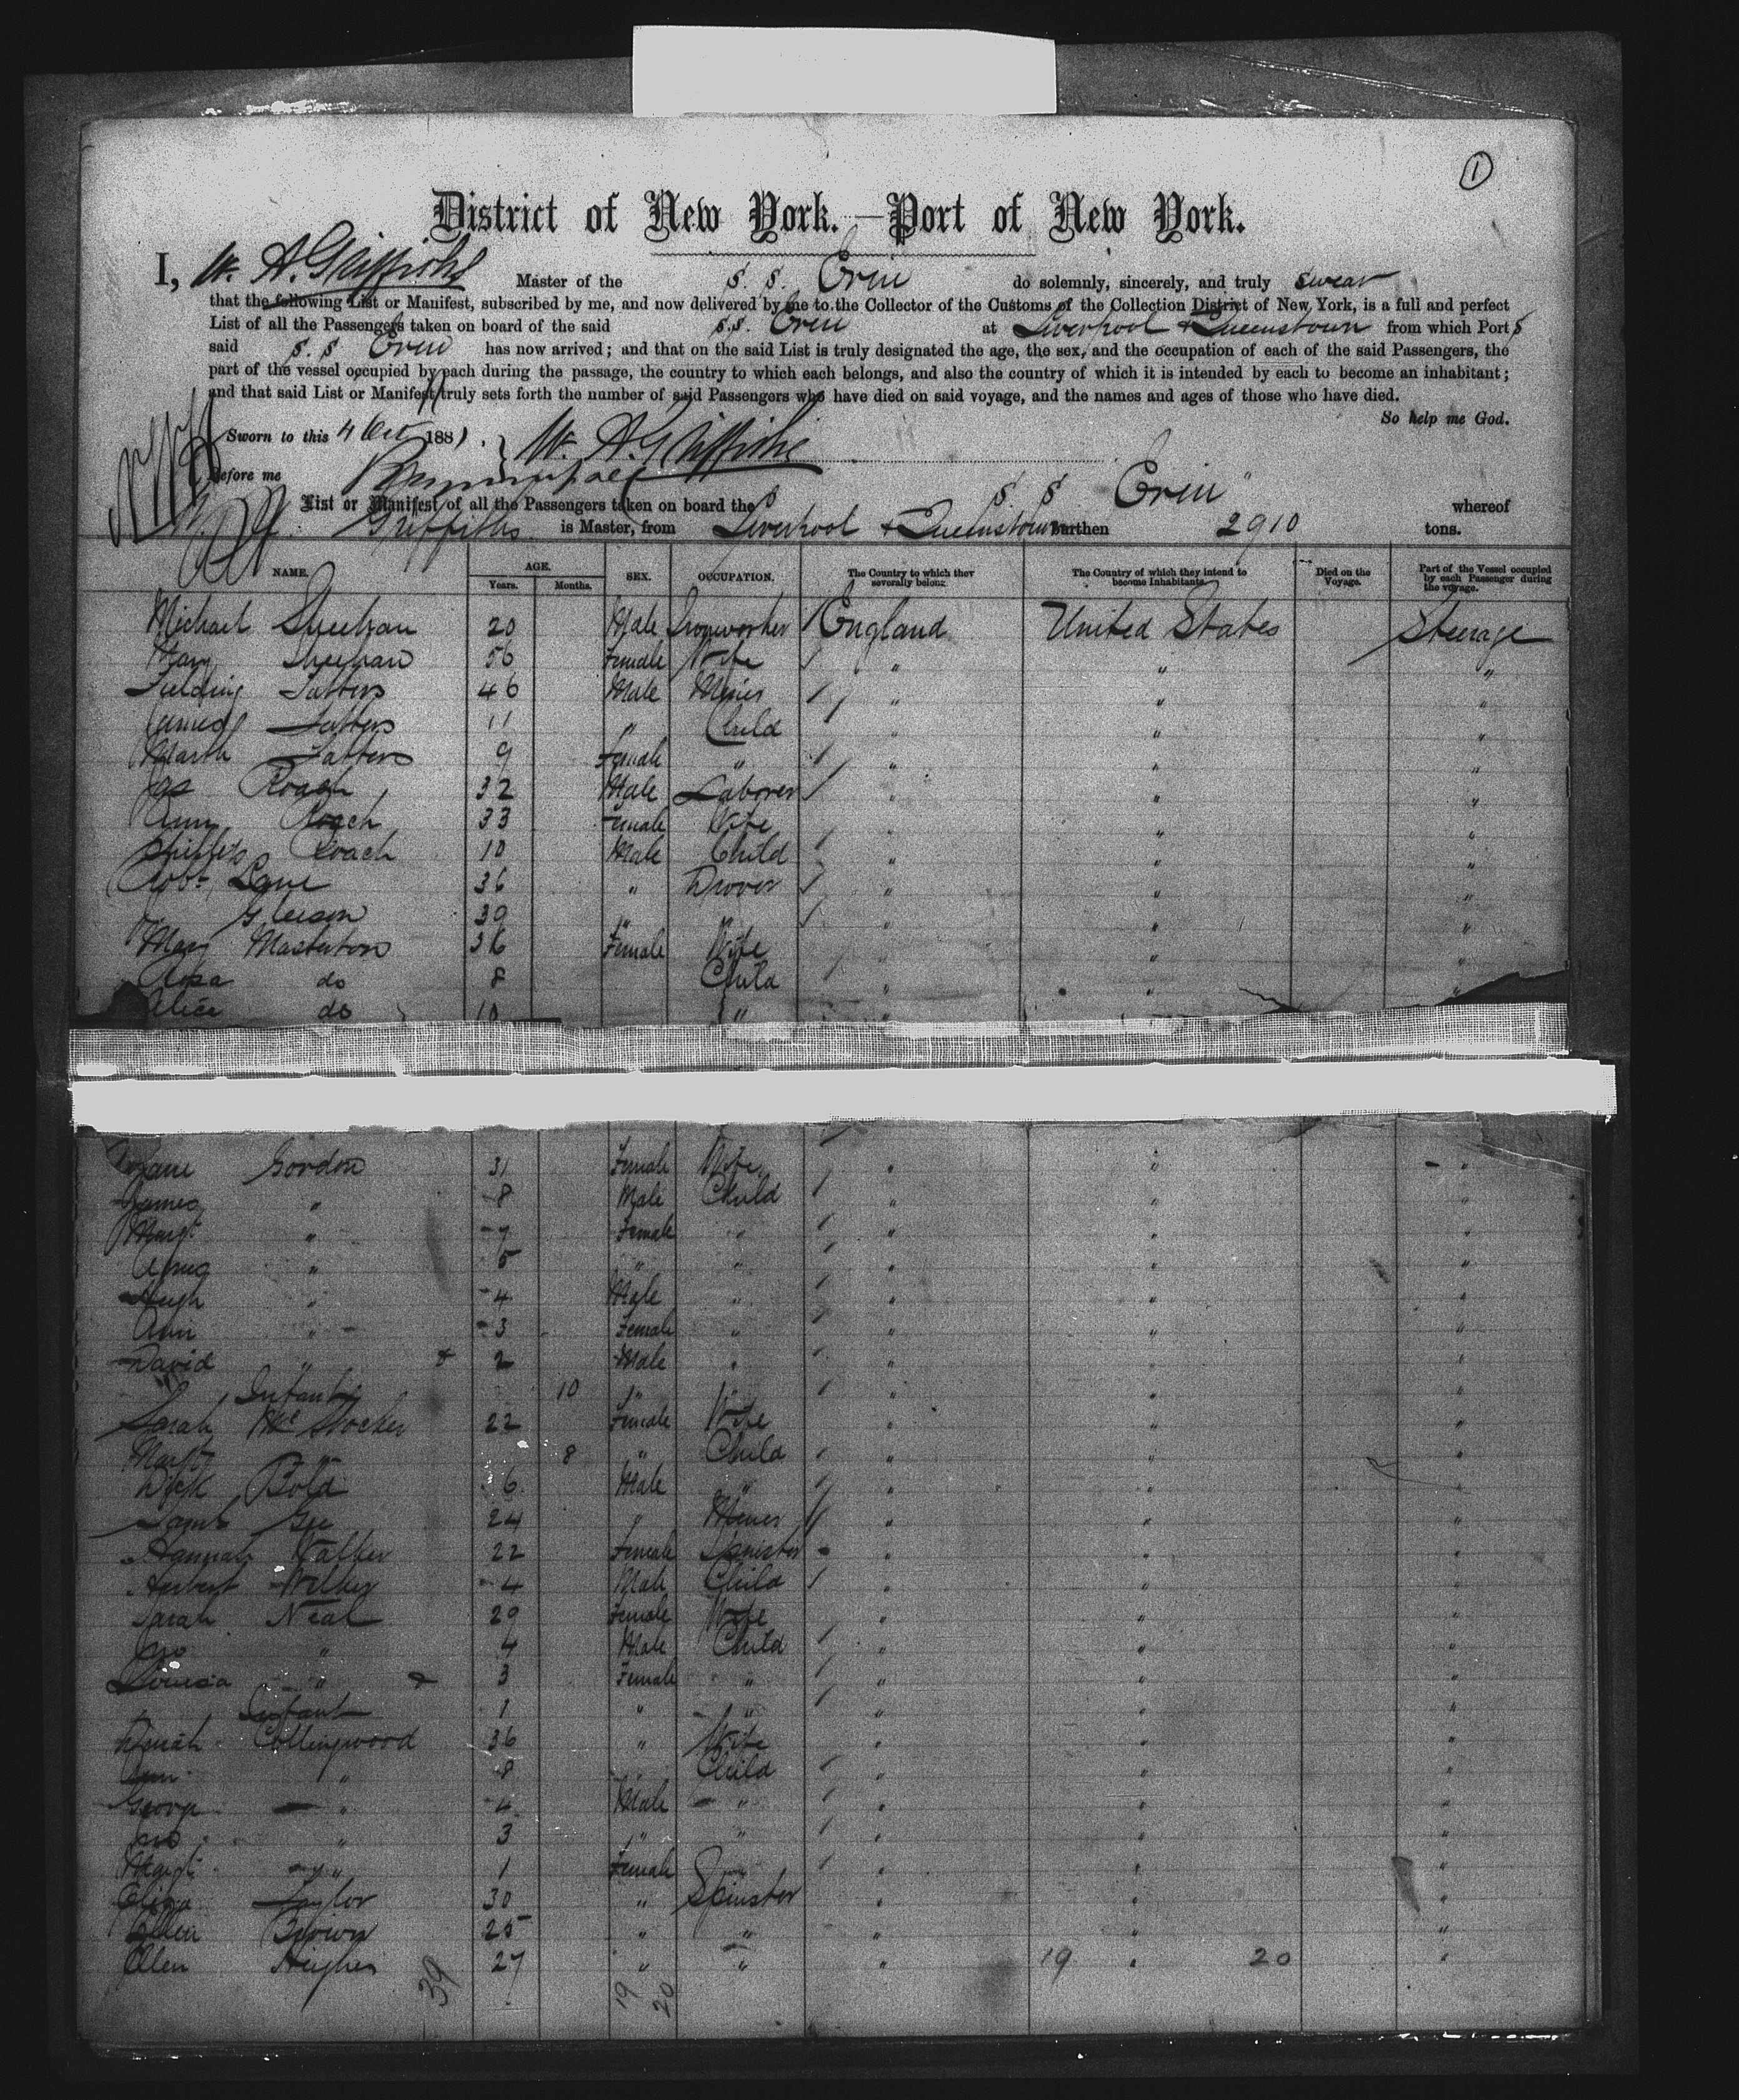 ①
District of New York.—Port of New York.
I, W. A. Griffiths Master of the S. S. Erin do solemnly, sincerely, and truly swear
that the following List or Manifest, subscribed by me, and now delivered by me to the Collector of the Customs of the Collection District of New York, is a full and perfect
List of all the Passengers taken on board of the said S.S. Erin at Liverpool & Queenstown from which Port s
said S. S Erin has now arrived; and that on the said List is truly designated the age, the sex, and the occupation of each of the said Passengers, the
part of the vessel occupied by each during the passage, the country to which each belongs, and also the country of which it is intended by each to become an inhabitant;
and that said List or Manifest truly sets forth the number of said Passengers who have died on said voyage, and the names and ages of those who have died.
So help me God.
Sworn to this 4 Oct 1881. W. A. Griffiths
Before me
List or Manifest of all the Passengers taken on board the S. S Erin whereof
Griffiths is Master, from Liverpool & Queenstown burthen 2910 tons.
NAME. AGE. Years. Months. SEX. OCCUPATION. The Country to which they severally belong. The Country of which they intend to become Inhabitants. Died on the Voyage. Part of the Vessel occupied by each Passenger during the voyage.
Michael Sheehan 20 Male Ironworker England United States Steerage
Mary Sheehan 56 Female Wife " " "
Fielding 46 Male Miner " " "
James 11 " Child " " "
9 Female " " " "
Jas Roach 32 Male Laborer " " "
Ann Roach 33 Female Wife " " "
Roach 10 Male Child " " "
Robt Lane 36 " Drover " " "
Gleeson 39 " " " " "
Mary Masterton 36 Female Wife " " "
Rosa do 8 Child " " "
Alice do 10 " "
Jane Gordon 31 Female Wife " " "
James " 8 Male Child " " "
Margt " 7 Female " " " "
Agnes " 5 " " " " "
Hugh " 4 Male " " " "
Ann " 3 Female " " " "
David " & 2 Male " " " "
Infant 10 " " " "
Sarah 22 Female Wife " " "
Margt " 8 " Child " " "
Dick Bold 6 Male " " " "
Gee 24 " Miner " " "
Hannah Walker 22 Female Spinster " " "
Herbert Walker 4 Male Child " " "
Sarah Neal 29 Female Wife " " "
Jno " 4 Male Child " " "
Louisa " & 3 Female " " " "
Infant 1 " " " " "
Collingwood 36 " Wife " " "
Ann " 8 " Child " " "
George " 4 Male " " " "
Jno " 3 " " " " "
Margt " 1 Female " " " "
Eliza Taylor 30 " Spinster " " "
Ellen Brown 25 " " " " "
Ellen Hughes 27 " " " 19 " 20 "
39 19 20